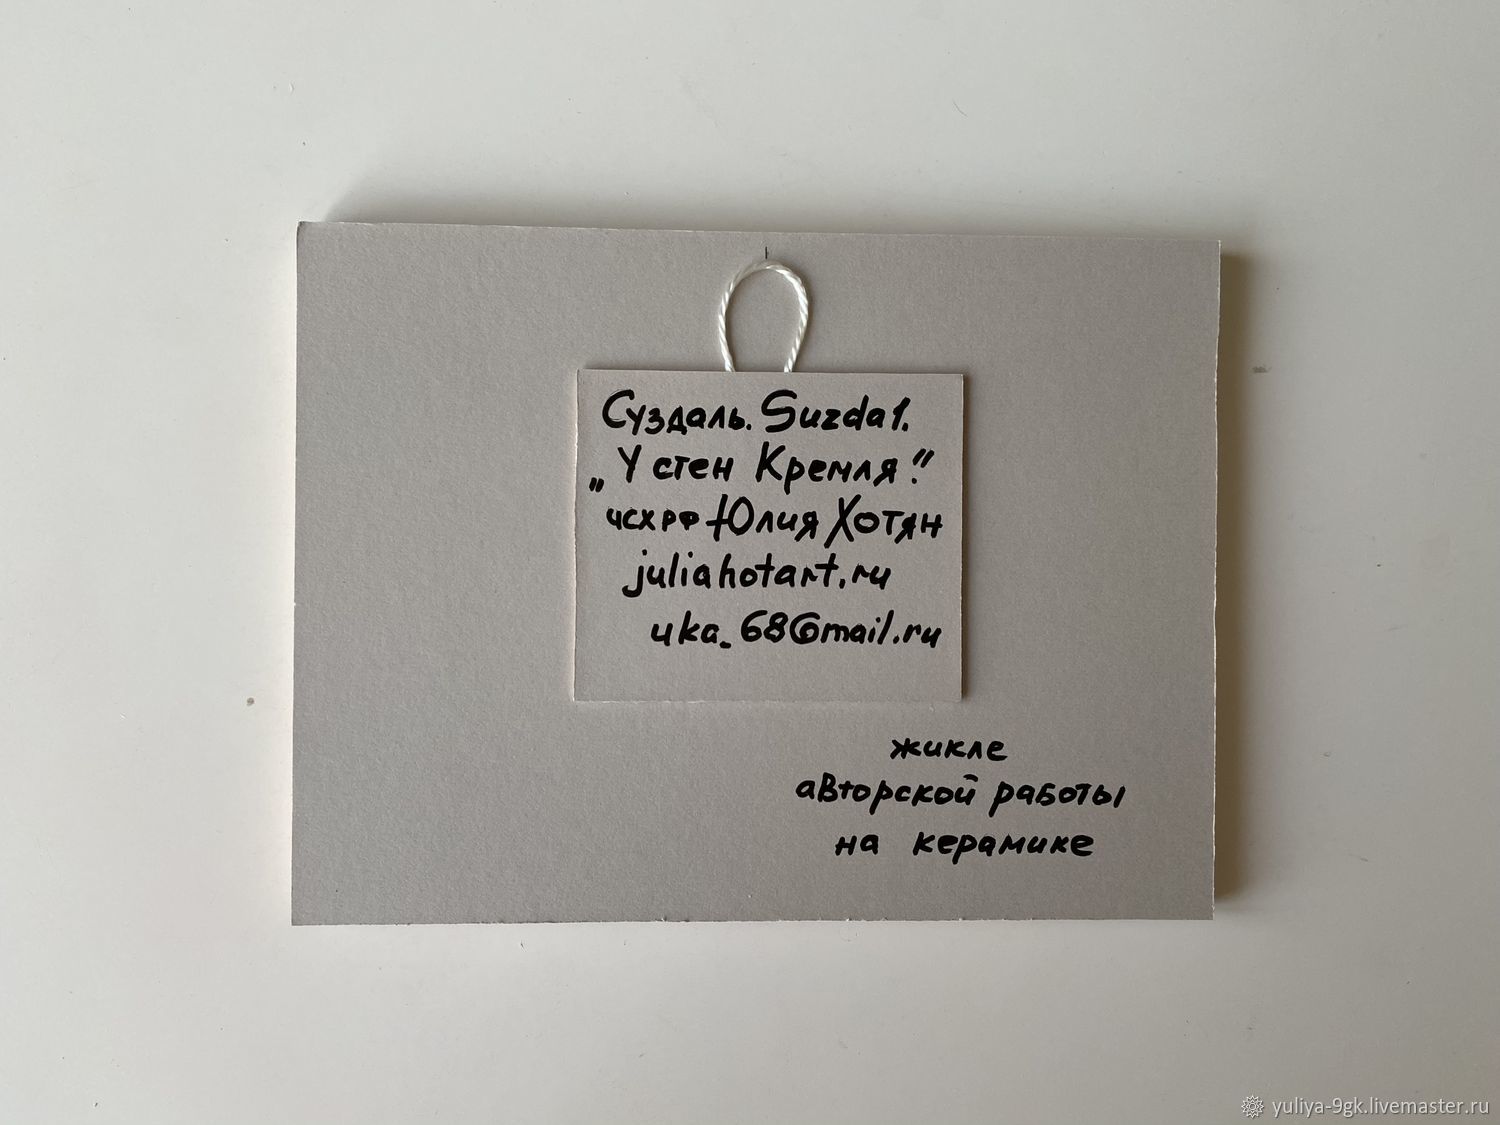 Суздаль. Suzdal.
„У стен Кремля."
чсхрф Юлия Хотян
juliahotart.ru
uka_68@mail.ru
жикле
авторской работы
на керамике
yuliya-9gk.livemaster.ru